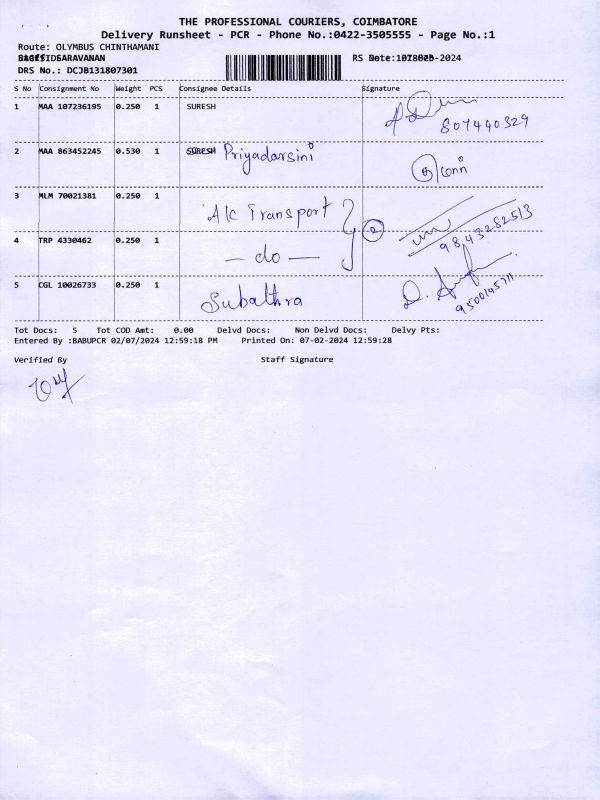 THE PROFESSIONAL COURIERS, COIMBATORE
Delivery Runsheet - PCR - Phone No.:0422-3505555 - Page No.:1
Route: OLYMBUS CHINTHAMANI
SARAVANAN
-2024
DRS No.: DCJB131807301
S No Consignment No Weight PCS Consignee Details Signature
1 MAA 107236195 0.250 1 SURESH
807440329
2 MAA 863452245 0.530 1 SURESH Priyadarsini
3 MLM 70021381 0.250 1 A/c Transport
2
9843282513
4 TRP 4330462 0.250 1 - do -
5 CGL 10026733 0.250 1 Subathra
Tot Docs: 5 Tot COD Amt: 0.00 Delvd Docs: Non Delvd Docs: Delvy Pts:
Entered By :BABUPCR 02/07/2024 12:59:18 PM Printed On: 07-02-2024 12:59:28
Verified By Staff Signature